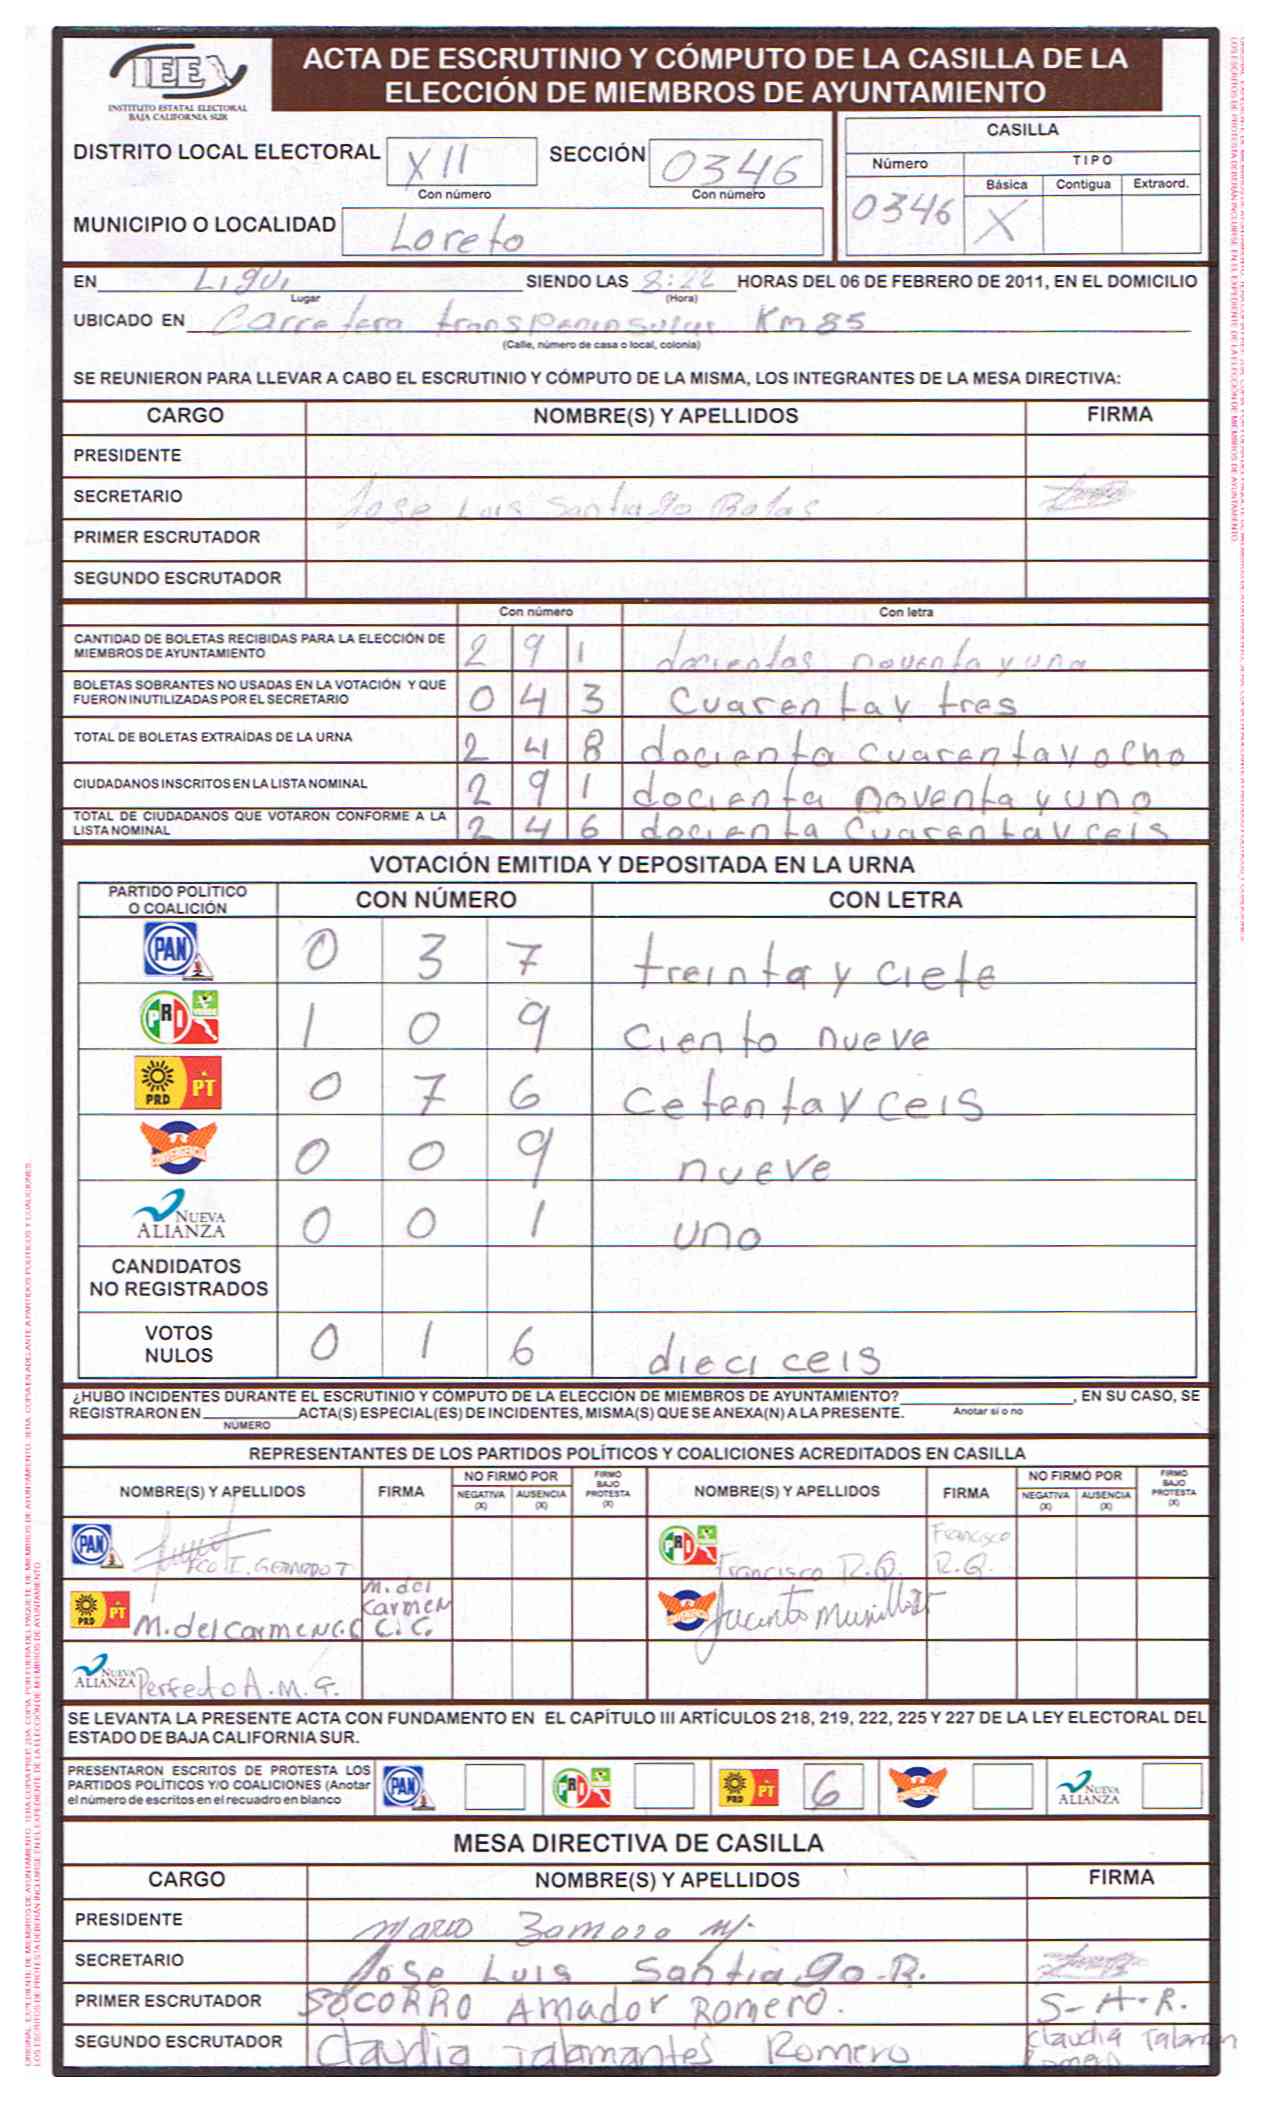 IEE
INSTITUTO ESTATAL ELECTORAL
BAJA CALIFORNIA SUR
ACTA DE ESCRUTINIO Y CÓMPUTO DE LA CASILLA DE LA
ELECCIÓN DE MIEMBROS DE AYUNTAMIENTO
DISTRITO LOCAL ELECTORAL XII SECCIÓN 0346
Con número Con número
MUNICIPIO O LOCALIDAD Loreto
CASILLA
Número TIPO
Básica Contigua Extraord.
0346 X
EN Ligui SIENDO LAS 8:22 HORAS DEL 06 DE FEBRERO DE 2011, EN EL DOMICILIO
Lugar (Hora)
UBICADO EN Carretera transpeninsular Km 85
(Calle, número de casa o local, colonia)
SE REUNIERON PARA LLEVAR A CABO EL ESCRUTINIO Y CÓMPUTO DE LA MISMA, LOS INTEGRANTES DE LA MESA DIRECTIVA:
CARGO NOMBRE(S) Y APELLIDOS FIRMA
PRESIDENTE
SECRETARIO Jose Luis Santiago
PRIMER ESCRUTADOR
SEGUNDO ESCRUTADOR
Con número Con letra
CANTIDAD DE BOLETAS RECIBIDAS PARA LA ELECCIÓN DE
MIEMBROS DE AYUNTAMIENTO 2 9 1 docientas noventa y una
BOLETAS SOBRANTES NO USADAS EN LA VOTACIÓN Y QUE
FUERON INUTILIZADAS POR EL SECRETARIO 0 4 3 cuarentay tres
TOTAL DE BOLETAS EXTRAÍDAS DE LA URNA 2 4 8 docienta cuarentay ocho
CIUDADANOS INSCRITOS EN LA LISTA NOMINAL 2 9 1 docienta noventa y uno
TOTAL DE CIUDADANOS QUE VOTARON CONFORME A LA
LISTA NOMINAL 2 4 6 docienta cuarentay ceis
VOTACIÓN EMITIDA Y DEPOSITADA EN LA URNA
PARTIDO POLÍTICO
O COALICIÓN CON NÚMERO CON LETRA
PAN 0 3 7 treinta y ciete
PRI VERDE 1 0 9 ciento nueve
PRD PT 0 7 6 cetentay ceis
CONVERGENCIA 0 0 9 nueve
NUEVA ALIANZA 0 0 1 uno
CANDIDATOS
NO REGISTRADOS
VOTOS
NULOS 0 1 6 dieci ceis
¿HUBO INCIDENTES DURANTE EL ESCRUTINIO Y CÓMPUTO DE LA ELECCIÓN DE MIEMBROS DE AYUNTAMIENTO? , EN SU CASO, SE
REGISTRARON EN ACTA(S) ESPECIAL(ES) DE INCIDENTES, MISMA(S) QUE SE ANEXA(N) A LA PRESENTE. Anotar sí o no
NÚMERO
REPRESENTANTES DE LOS PARTIDOS POLÍTICOS Y COALICIONES ACREDITADOS EN CASILLA
NOMBRE(S) Y APELLIDOS FIRMA NO FIRMÓ POR NEGATIVA (X) AUSENCIA (X) FIRMÓ BAJO PROTESTA (X) NOMBRE(S) Y APELLIDOS FIRMA NO FIRMÓ POR NEGATIVA (X) AUSENCIA (X) FIRMÓ BAJO PROTESTA (X)
PAN FCO. I. GERARDO T PRI Francisco R.Q. Francisco R.Q.
PRD PT M. del carmen C.C M. del Carmen C.C. CONVERGENCIA Jacinto
NUEVA ALIANZA Perfecto A.M.G.
SE LEVANTA LA PRESENTE ACTA CON FUNDAMENTO EN EL CAPÍTULO III ARTÍCULOS 218, 219, 222, 225 Y 227 DE LA LEY ELECTORAL DEL
ESTADO DE BAJA CALIFORNIA SUR.
PRESENTARON ESCRITOS DE PROTESTA LOS
PARTIDOS POLÍTICOS Y/O COALICIONES (Anotar
el número de escritos en el recuadro en blanco
PAN PRI PRD PT 6 CONVERGENCIA NUEVA ALIANZA
MESA DIRECTIVA DE CASILLA
CARGO NOMBRE(S) Y APELLIDOS FIRMA
PRESIDENTE MARIO Zamora M.
SECRETARIO Jose Luis Santiago. R.
PRIMER ESCRUTADOR SOCORRO Amador Romero. S-A-R.
SEGUNDO ESCRUTADOR Claudia Talamantes Romero Claudia